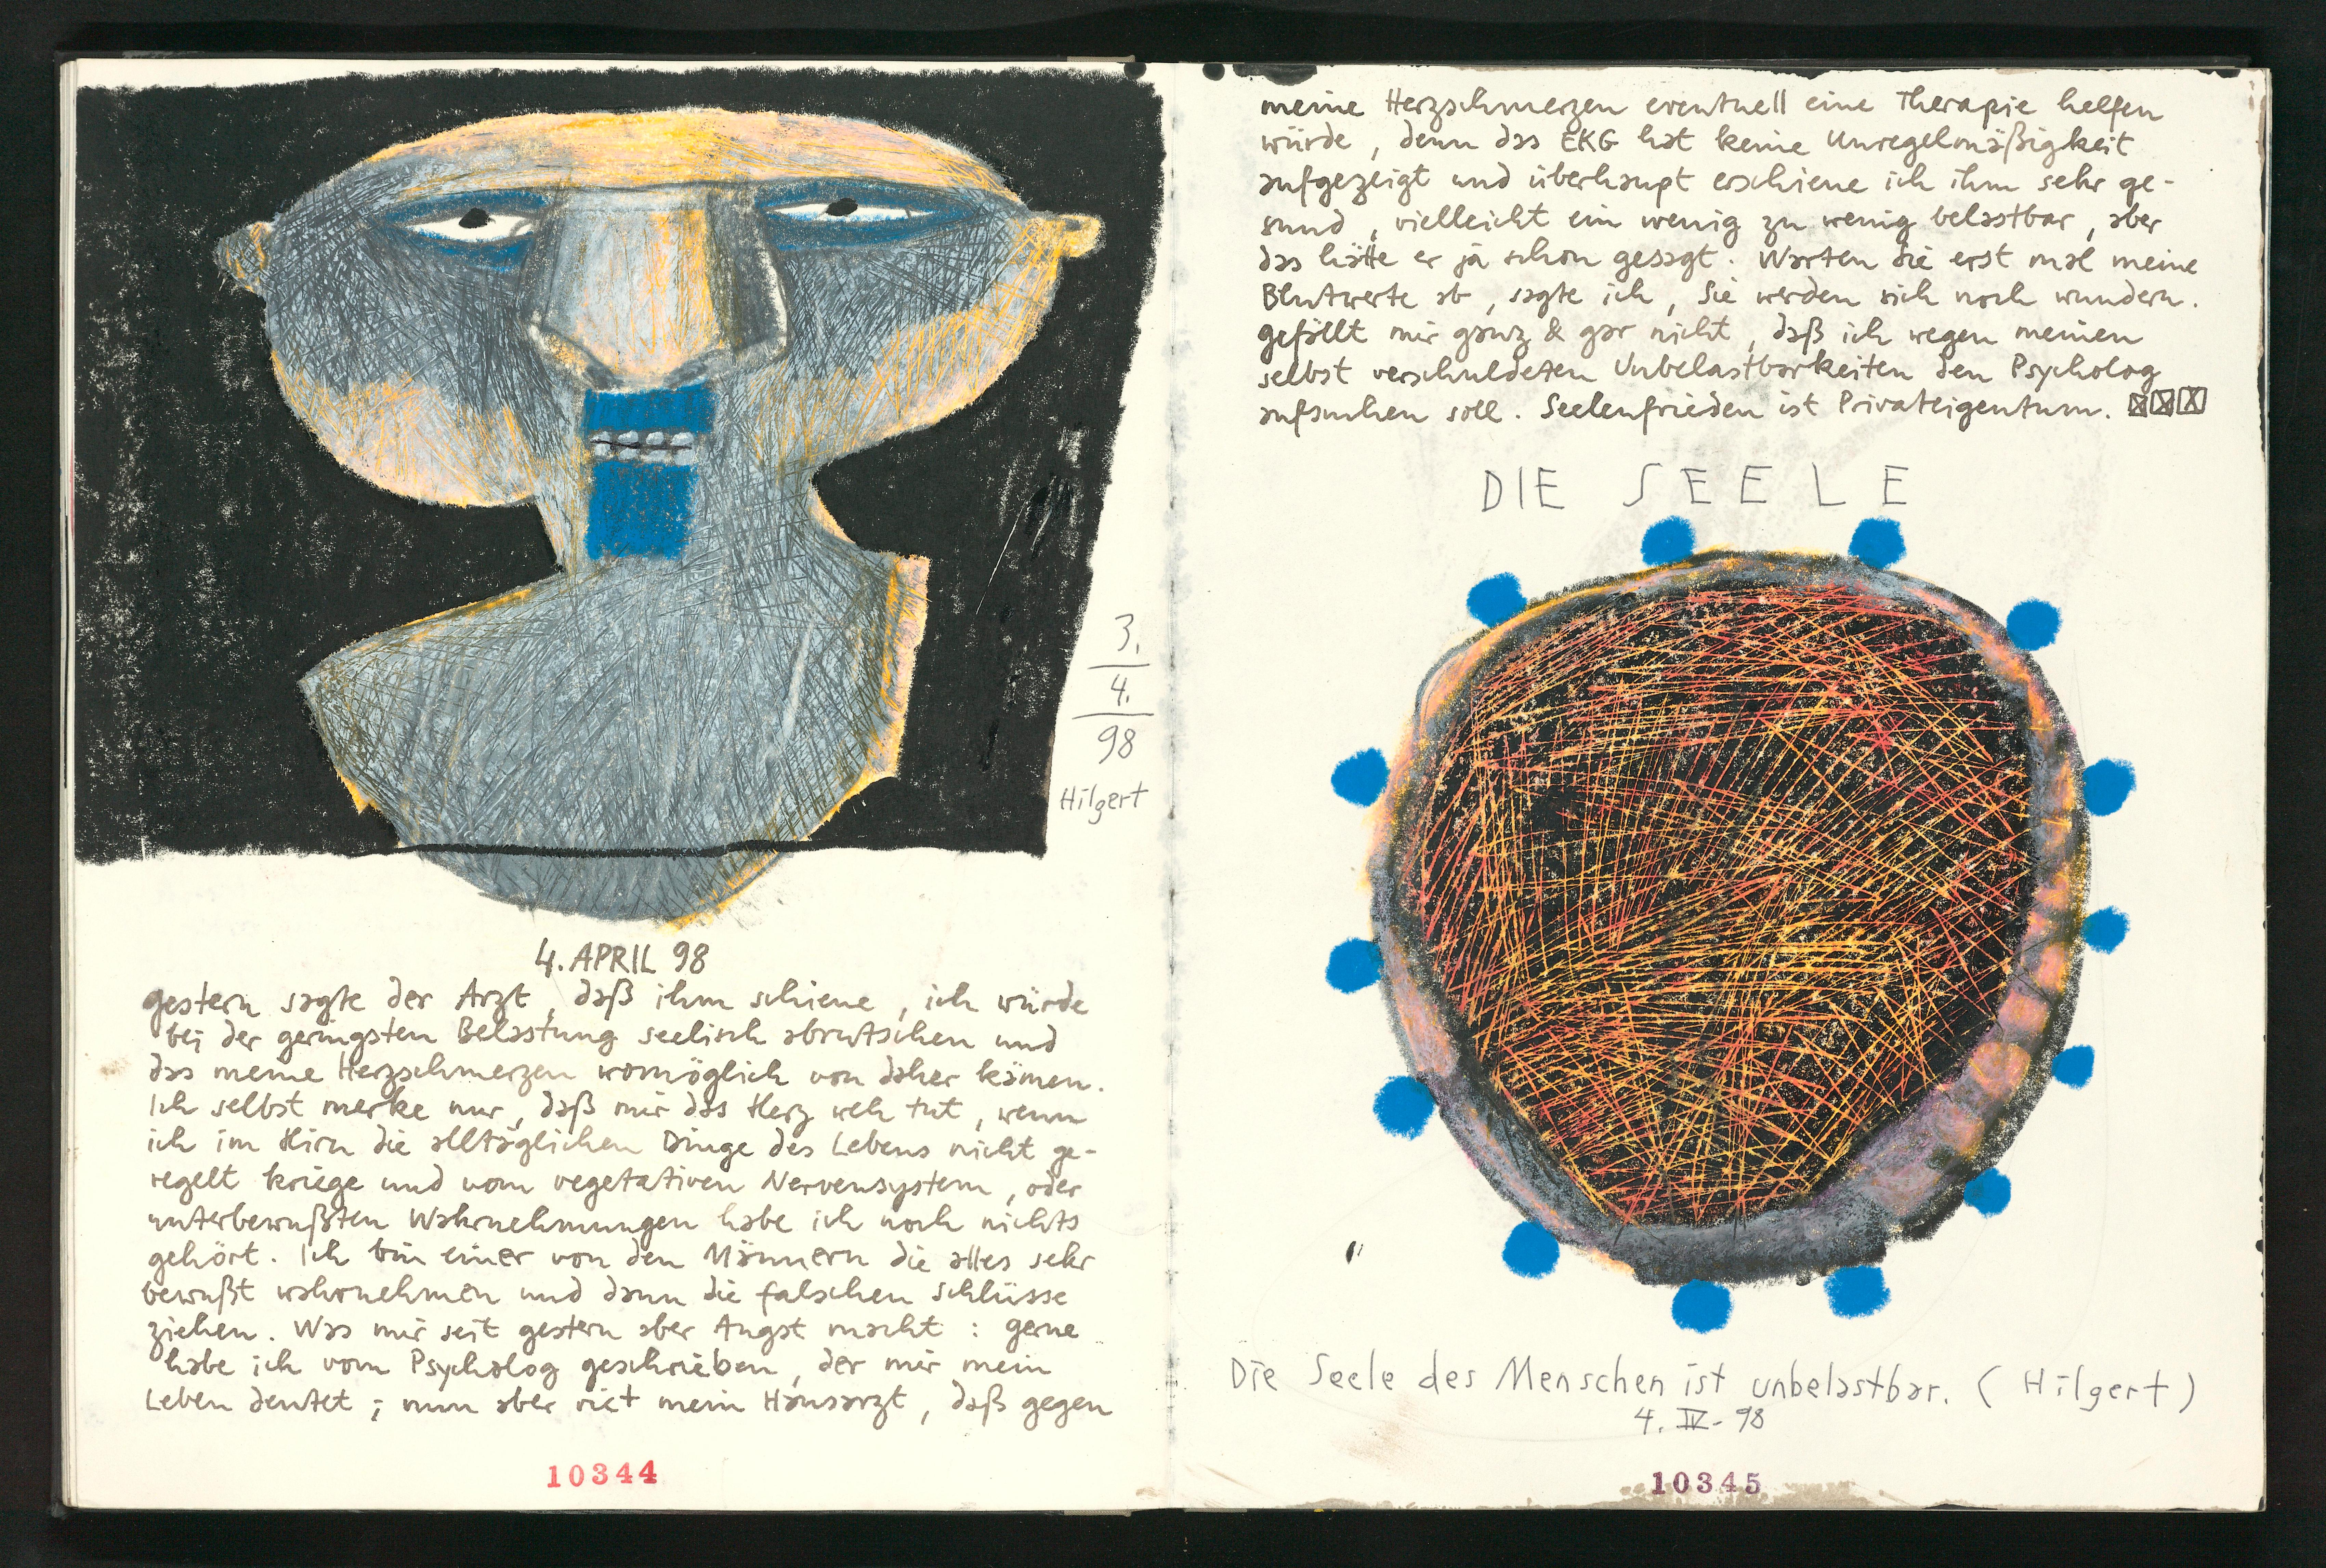 3.
4.
98
Hilgert
4. APRIL 98
gestern sagte der Arzt, daß ihm schiene, ich würde
bei der geringsten Belastung seelisch abrutschen und
das meine Herzschmerzen womöglich von daher kämen.
Ich selbst merke nur, daß mir das Herz weh tut, wenn
ich im Hirn die alltäglichen Dinge des Lebens nicht ge-
regelt kriege und vom vegetativen Nervensystem, oder
unterbewußten Wahrnehmungen habe ich noch nichts
gehört. Ich bin einer von den Männern die alles sehr
bewußt wahrnehmen und dann die falschen Schlüsse
ziehen. Was mir seit gestern aber Angst macht: gerne
habe ich vom Psycholog geschrieben, der mir mein
Leben deutet; nun aber riet mein Hausarzt, daß gegen
10344
meine Herzschmerzen eventuell eine Therapie helfen
würde, denn das EKG hat keine Unregelmäßigkeit
aufgezeigt und überhaupt erschiene ich ihm sehr ge-
sund, vielleicht ein wenig zu wenig belastbar, aber
das hätte er ja schon gesagt. Warten Sie erst mal meine
Blutwerte ab, sagte ich, Sie werden sich noch wundern.
gefällt mir ganz & gar nicht, daß ich wegen meinen
selbst verschuldeten Unbelastbarkeiten den Psycholog
aufsuchen soll. Seelenfrieden ist Privateigentum.
DIE SEELE
Die Seele des Menschen ist unbelastbar. (Hilgert)
4. IV - 98
10345